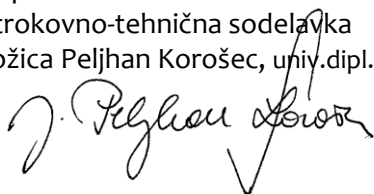 trokovno-tehnična sodelavka
ožica Peljhan Korošec, univ.dipl.
J. Peljhan Korošec